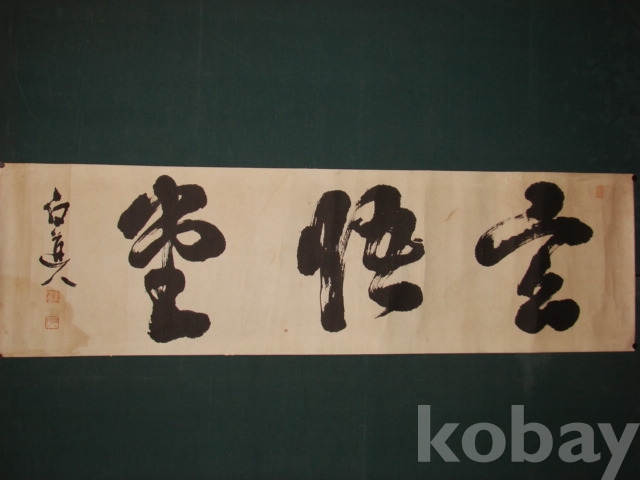 空悟堂
白道人
kobay